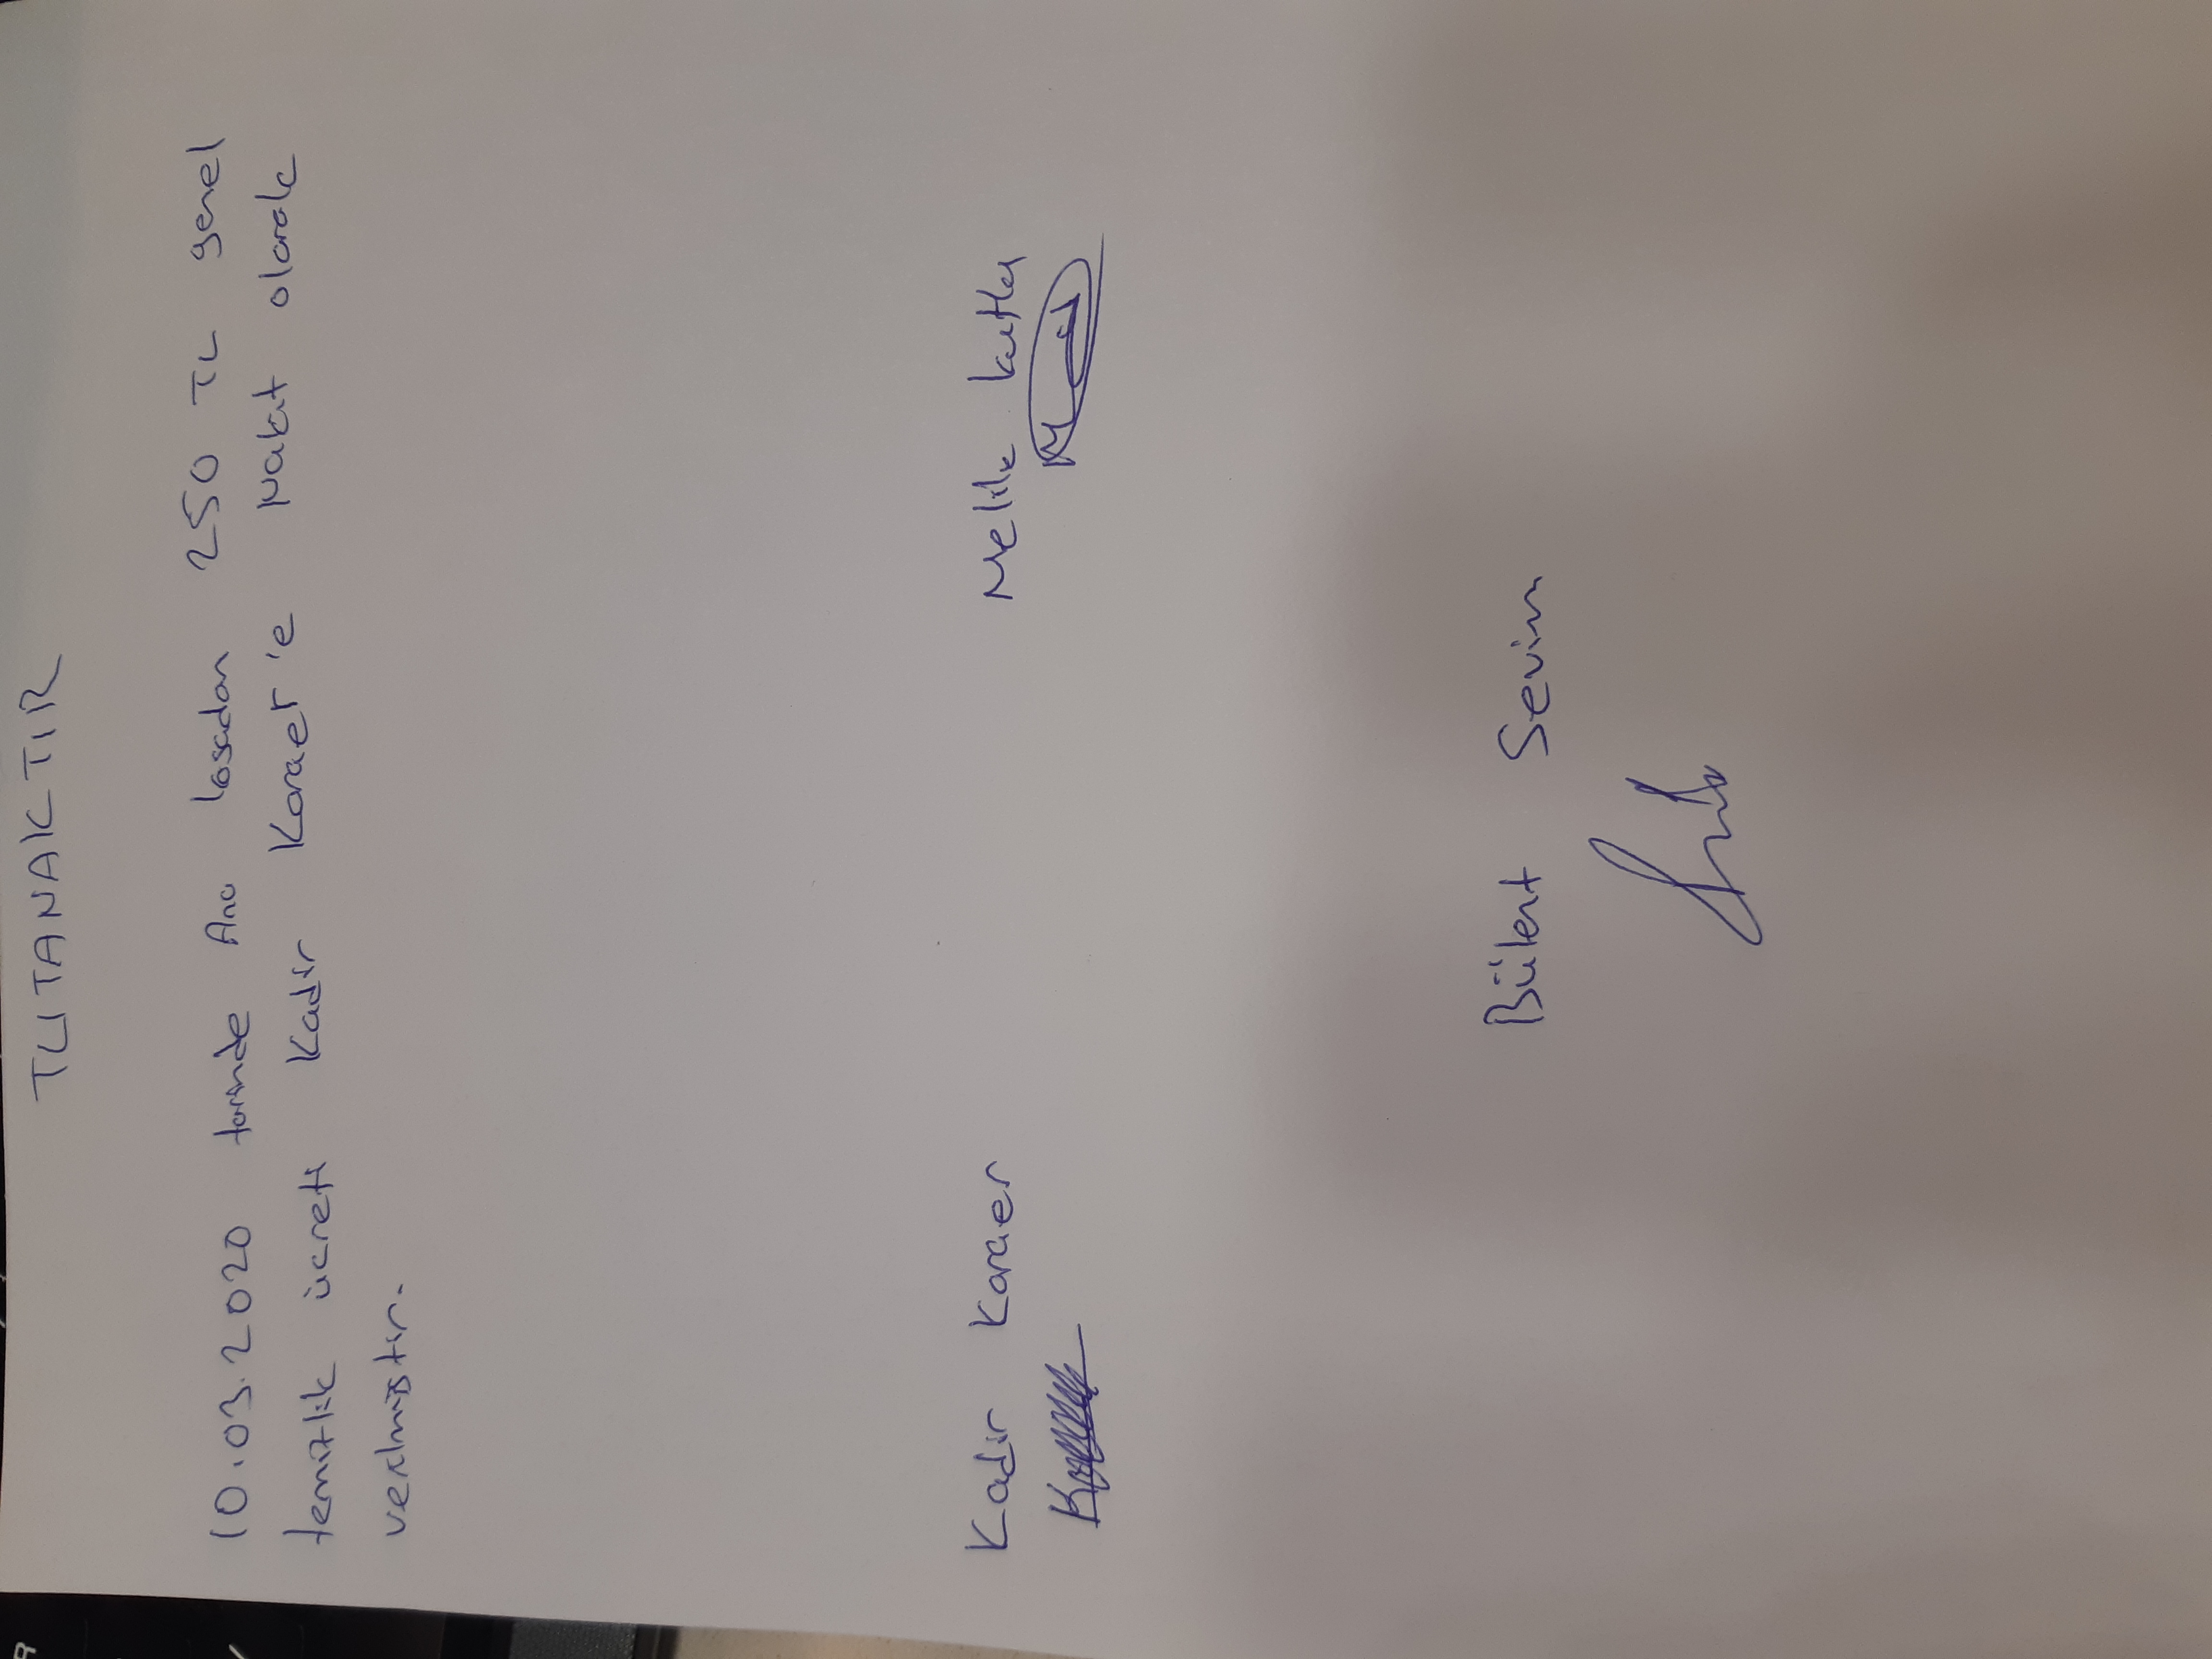 TUTANAKTIR
10.03.2020 tarihde Ana kasadan 250 TL genel
temizlik ücreti Kadir Karaer'e Nakit olarak
verilmiştir.
Kadir Karaer Melik Kutlu
Bülent Sevim